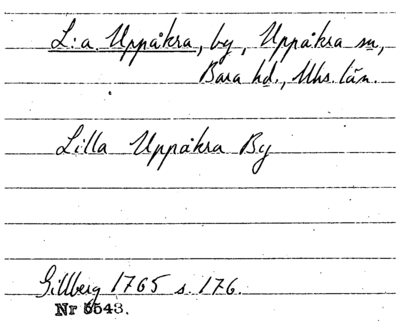 L:a. Uppåkra, by, Uppåkra sn,
Bara hd., Mhs. län.
Lilla Uppåkra By
Gillberg 1765 s. 176.
Nr 5543.